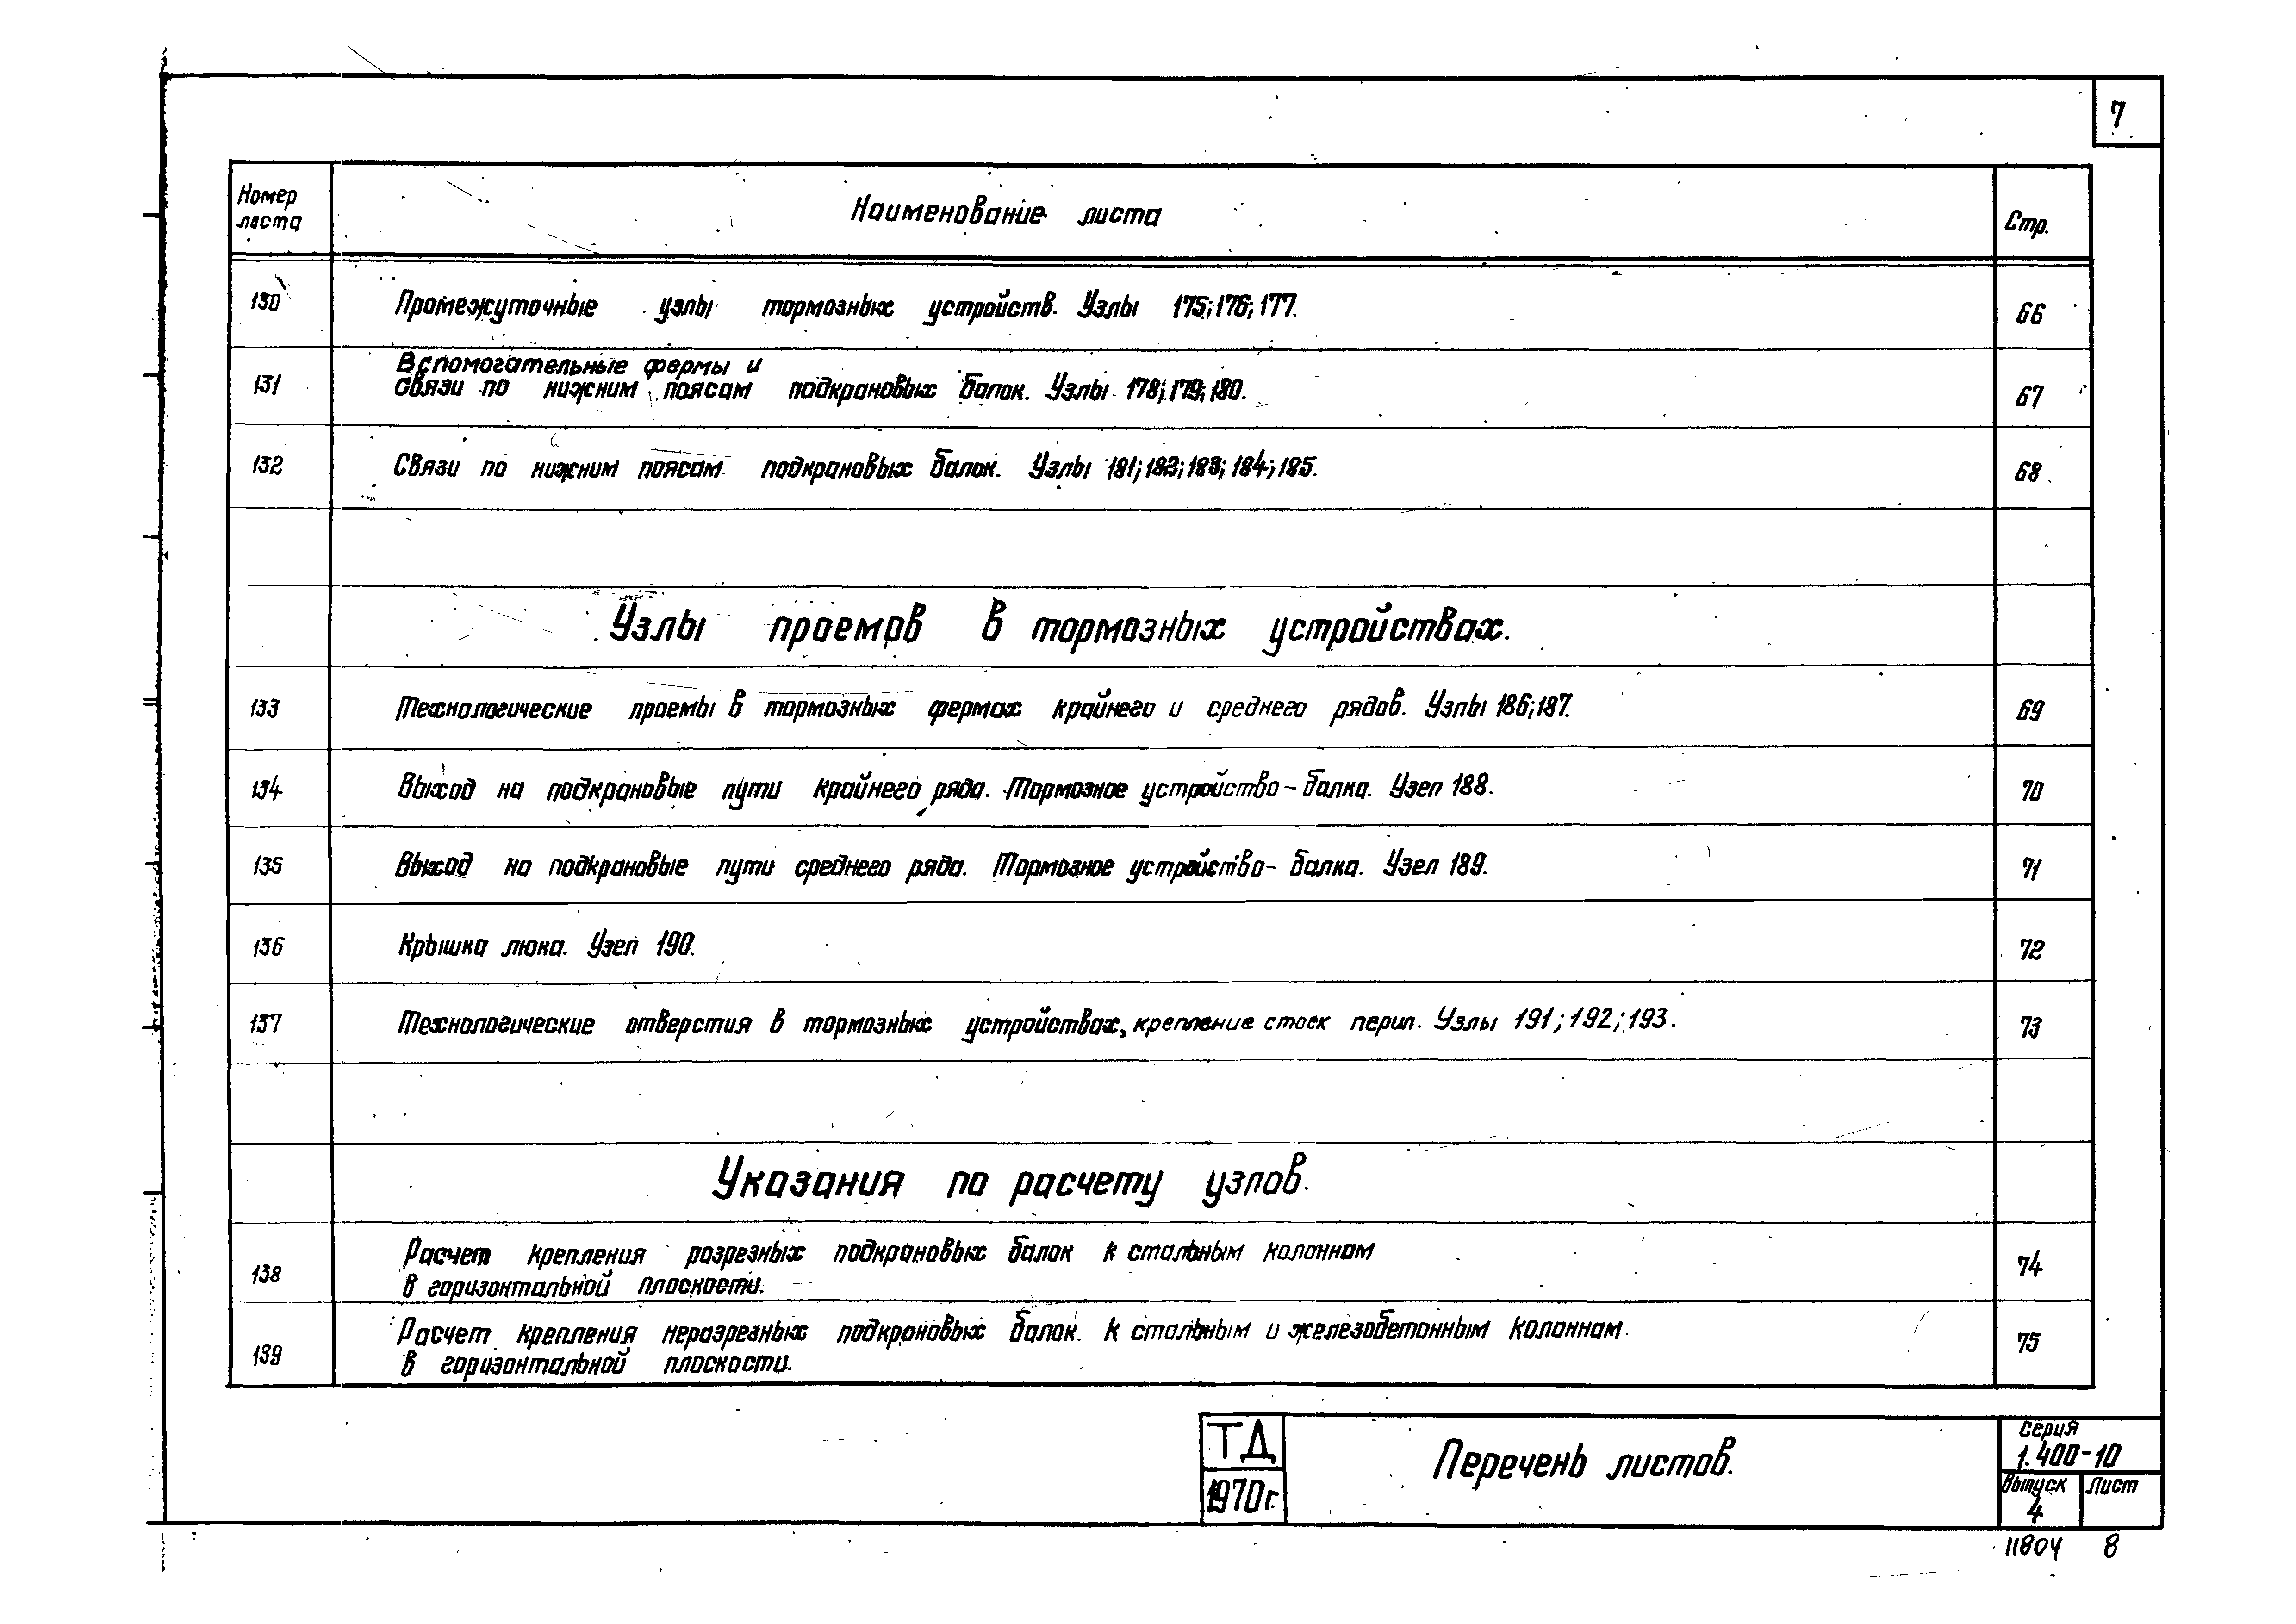 7
Номер листа
Наименование листа
Стр.
130 Промежуточные узлы тормозных устройств. Узлы 175; 176; 177. 66
Вспомогательные фермы и
131 связи по нижним поясам подкрановых балок. Узлы 178; 179; 180. 67
132 Связи по нижним поясам подкрановых балок. Узлы 181; 182; 183; 184; 185. 68
Узлы проемов в тормозных устройствах.
133 Технологические проемы в тормозных фермах крайнего и среднего рядов. Узлы 186; 187. 69
134 Выход на подкрановые пути крайнего ряда. Тормозное устройство - балка. Узел 188. 70
135 Выход на подкрановые пути среднего ряда. Тормозное устройство - балка. Узел 189. 71
136 Крышка люка. Узел 190. 72
137 Технологические отверстия в тормозных устройствах, крепление стоек перил. Узлы 191; 192; 193. 73
Указания по расчету узлов.
138 Расчет крепления разрезных подкрановых балок к стальным колоннам 74
в горизонтальной плоскости.
139 Расчет крепления неразрезных подкрановых балок к стальным и железобетонным колоннам 75
в горизонтальной плоскости.
ТД
1970г.
Перечень листов.
Серия
1.400-10
Выпуск
4
Лист
11804 8